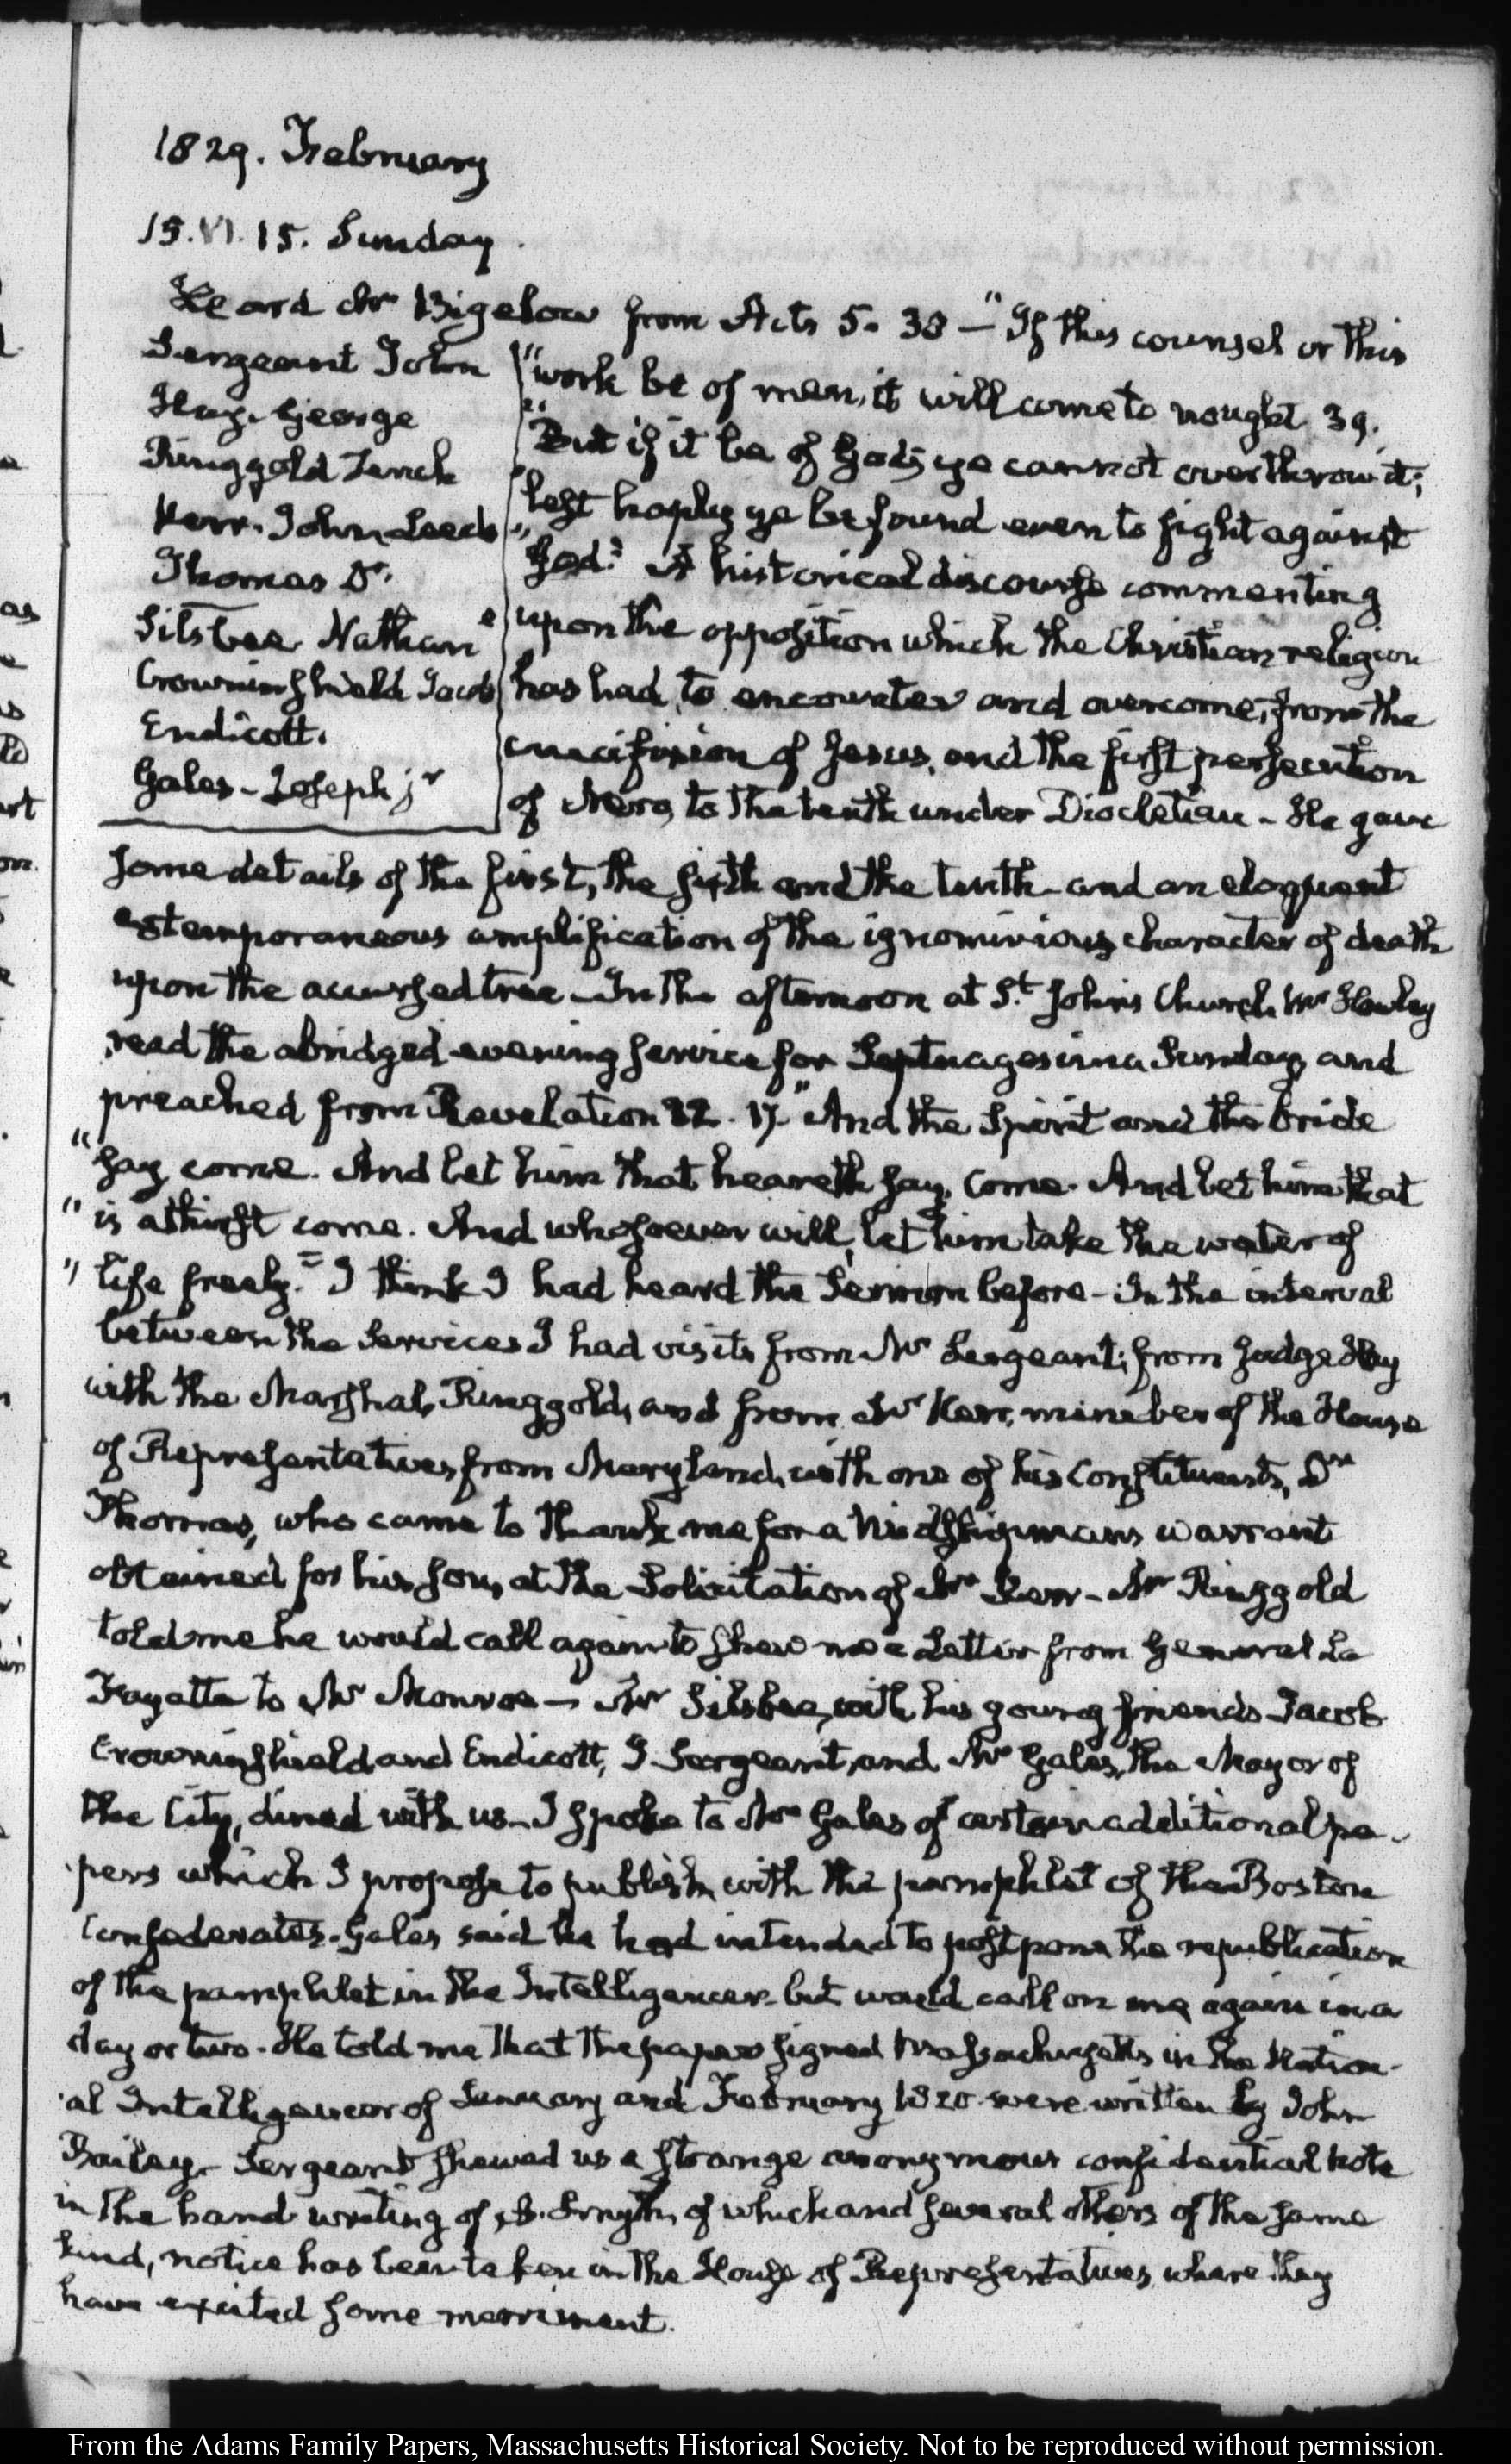 1829. February
15. VI. 15. Sunday.
Heard Mr Bigelow from Acts 5. 38 — "If this counsel or this
Sergeant John
Hay. George
Ringgold Tench
Kerr. John Leeds
Thomas Dr.
Silsbee Nathan
Crowninshield Jacob
Endicott.
Gales - Joseph jr
"work be of men, it will come to nought 39.
"But if it be of God, ye cannot overthrow it;
"lest haply ye be found even to fight against
"God." A historical discourse commenting
upon the opposition which the Christian religion
has had to encounter and overcome, from the
crucifixion of Jesus, and the first persecution
of Nero, to the tenth under Diocletian - He gave
some details of the first, the fifth and the tenth - and an eloquent
extemporaneous amplification of the ignominious character of death
upon the accursed tree - In the afternoon at St. John's Church Mr Hawley
read the abridged evening service for Septuagesima Sunday, and
preached from Revelation 22. 17. "And the Spirit and the bride
"say, come. And let him that heareth say, Come. And let him that
"is athirst come. And whosoever will, let him take the water of
"life freely." I think I had heard the Sermon before - In the interval
between the Services I had visits from Mr Sergeant; from Judge Hay
with the Marshal, Ringgold, and from Mr Kerr, member of the House
of Representatives from Maryland, with one of his Constituents, Dr
Thomas, who came to thank me for a Midshipmans warrant
obtained for his son, at the Solicitation of Mr Kerr - Mr Ringgold
told me he would call again to shew me a Letter from General La
Fayette to Mr Monroe - Mr Silsbee, with his young friends Jacob
Crowninshield and Endicott, J. Sergeant, and Mr Gales, the Mayor of
the City, dined with us - I spoke to Mr Gales of certain additional pa-
pers which I propose to publish, with the pamphlet of the Boston
Confederates - Gales said he had intended to postpone the republication
of the pamphlet in the Intelligencer - but would call on me again in a
day or two. He told me that the papers signed Massachusetts in the Nation-
al Intelligencer of January and February 1820 were written by John
Bailey - Sergeant shewed us a strange anonymous confidential note
in the hand writing of A. Smyth, of which and several others of the same
kind, notice has been taken in the House of Representatives, where they
have excited some merriment.
From the Adams Family Papers, Massachusetts Historical Society. Not to be reproduced without permission.